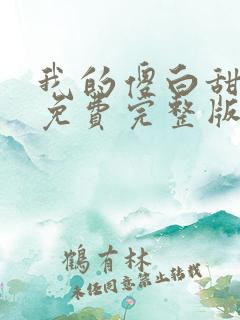 我的傻白甜
免費完整版
鶴有林
未经同意禁止转载